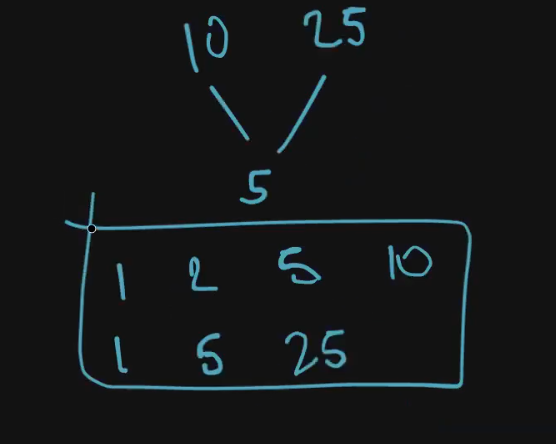 10 25
5
1 2 5 10
1 5 25